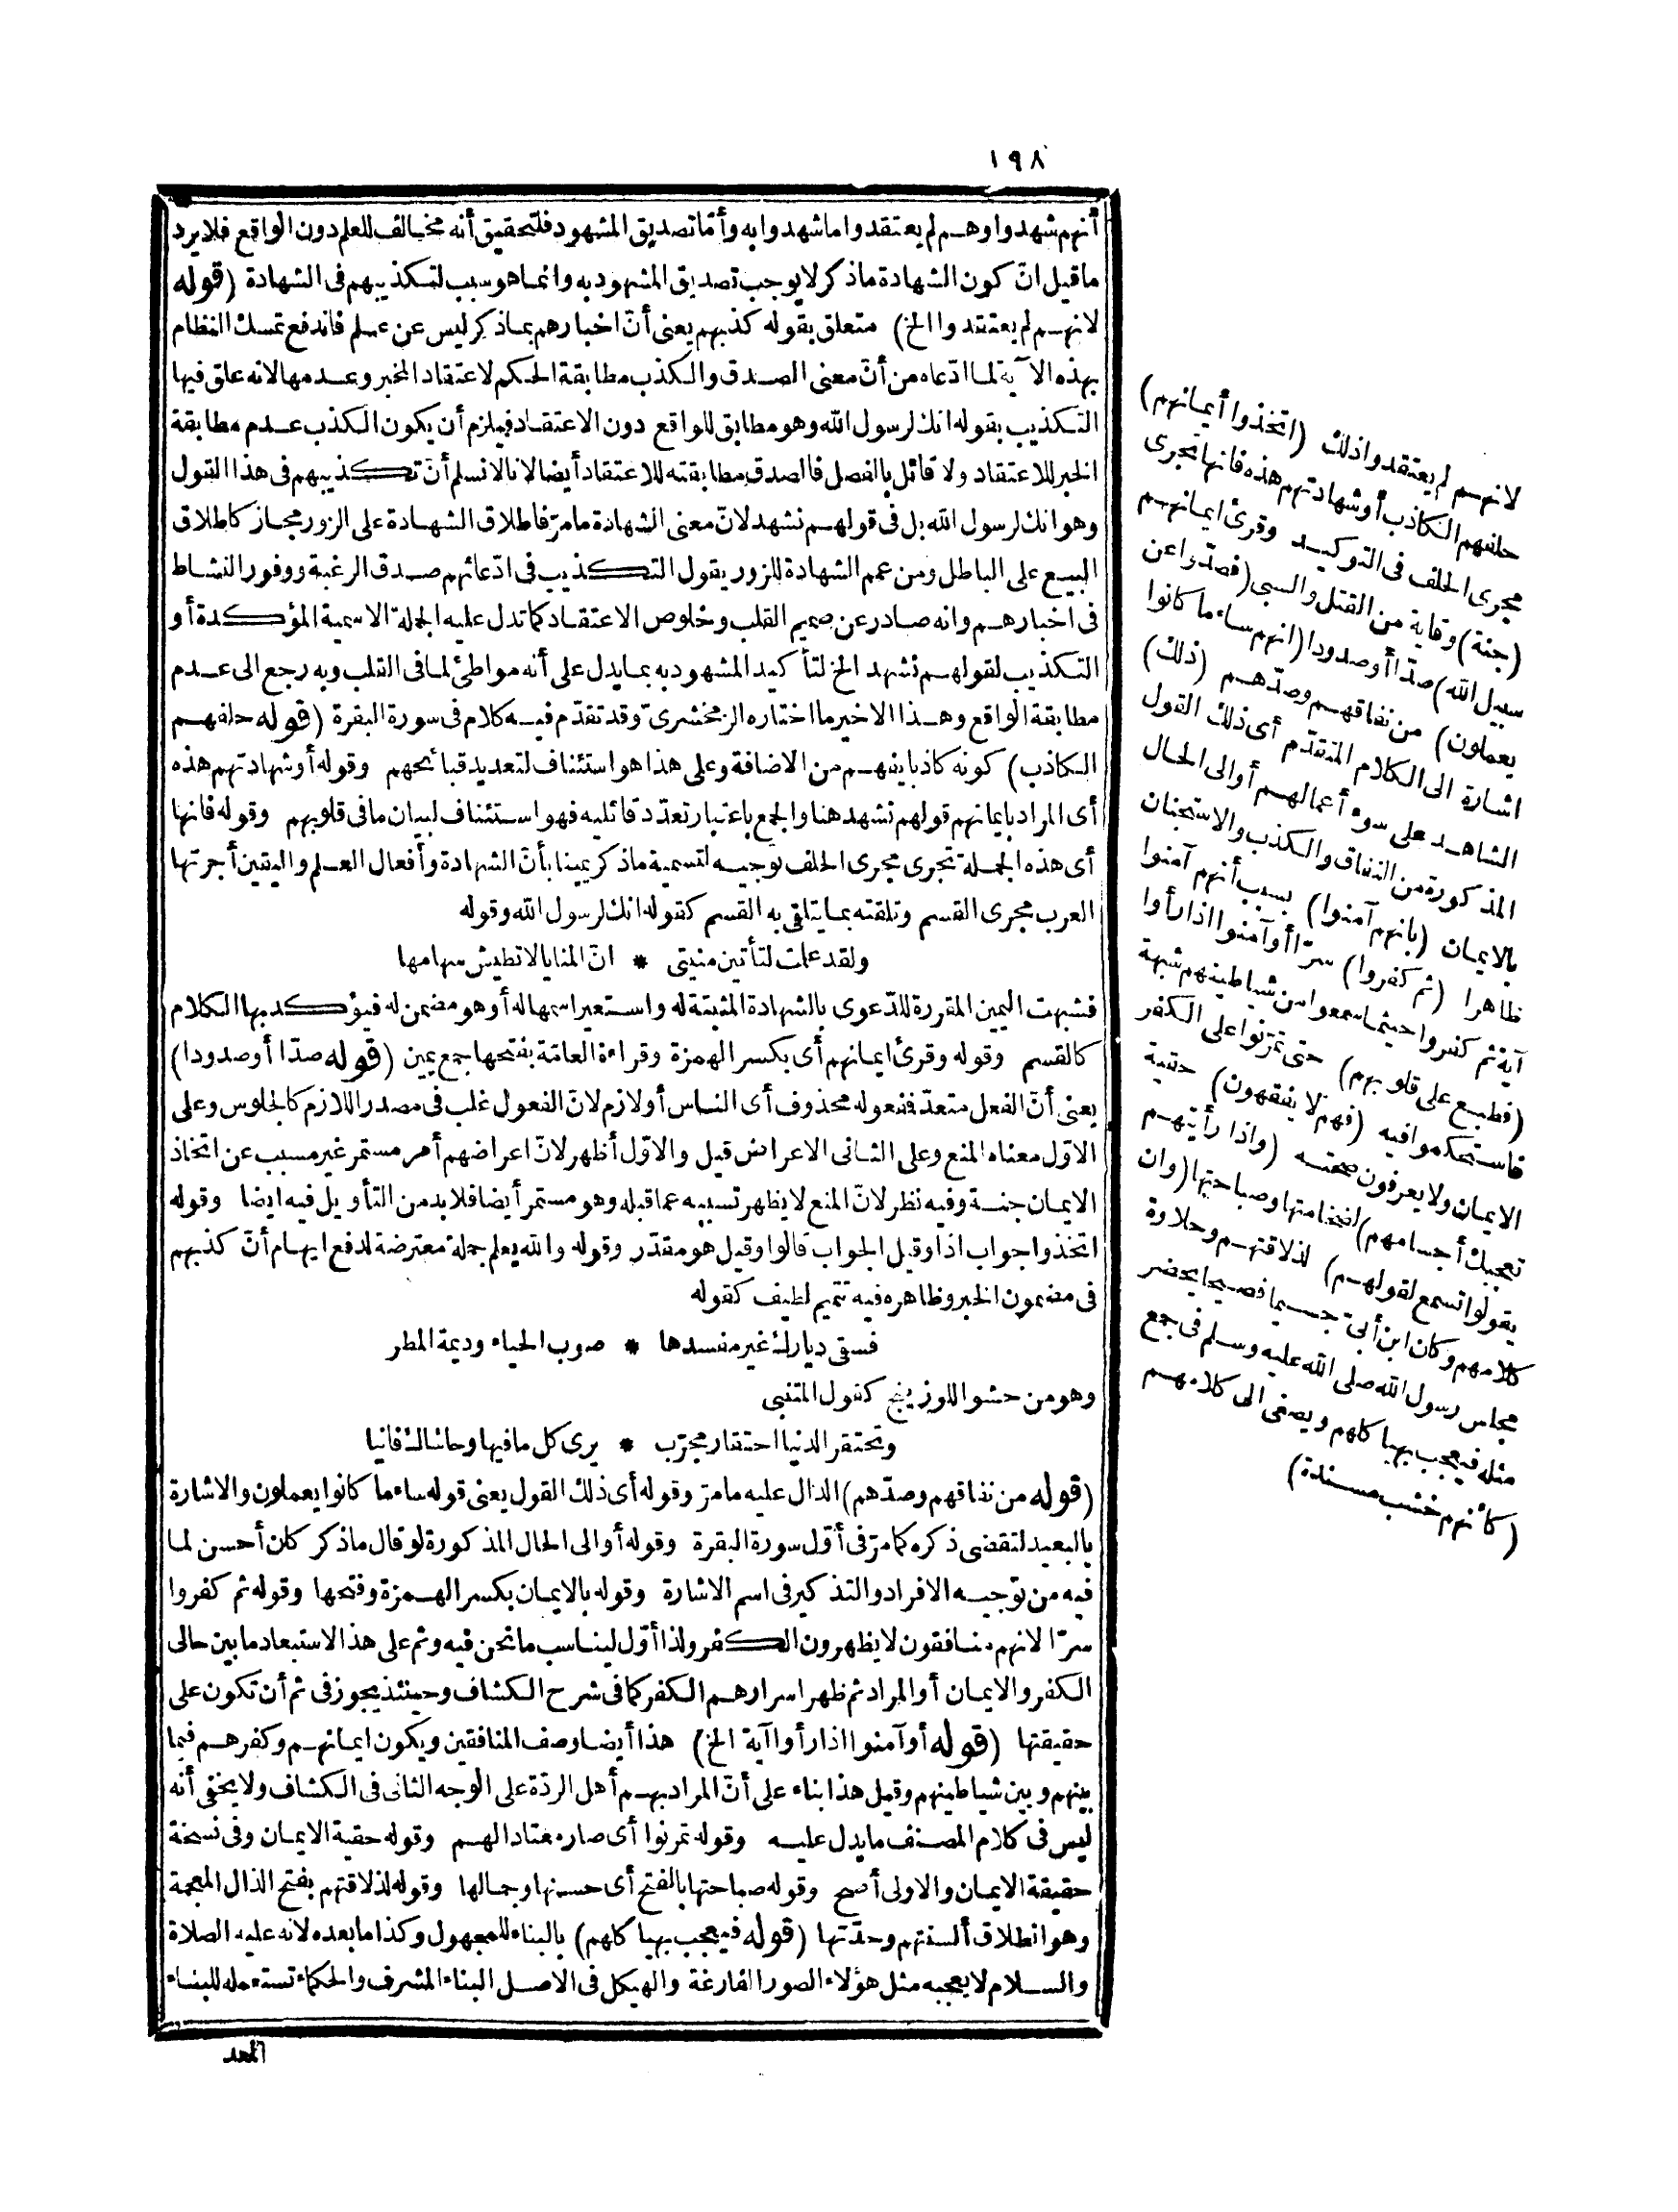 ١٩٨
أنهم شهدوا وهم لم يعتقدوا ما شهدوا به وأمّا تصديق المشهود فلتحقيق أنه مخالف للعلم دون الواقع فلا يرد
ما قيل انّ كون الشهادة ماذكر لا يوجب تصديق المشهود به وانما هو سبب لتكذيبهم فى الشهادة (قوله
لانهم لم يعتقدوا الخ) متعلق بقوله كذبهم يعنى أنّ اخبارهم بماذكر ليس عن علم فاندفع تمسك النظام
بهذه الآية لما ادّعاه من أنّ معنى الصدق والكذب مطابقة الحكم لاعتقاد المخبر وعدمها لانه علق فيها
التكذيب بقوله انك لرسول الله وهو مطابق للواقع دون الاعتقاد فيلزم أن يكون الكذب عدم مطابقة
الخبر للاعتقاد ولا قائل بالفصل فالصدق مطابقته للاعتقاد أيضا لانا لانسلم أنّ تكذيبهم فى هذا القول
وهو انك لرسول الله بل فى قولهم نشهد لانّ معنى الشهادة مامرّ فاطلاق الشهادة على الزور مجاز كاطلاق
البيع على الباطل ومن عمم الشهادة للزور يقول التكذيب فى ادّعائهم صدق الرغبة ووفور النشاط
فى اخبارهم وانه صادر عن صميم القلب وخلوص الاعتقاد كما تدل عليه الجملة الاسمية المؤكدة أو
التكذيب لقولهم نشهد الخ لتأكيد المشهود به بمايدل على أنه مواطئ لما فى القلب وبه رجع الى عدم
مطابقة الواقع وهذا الاخير ما اختاره الزمخشرىّ وقد تقدّم فيه كلام فى سورة البقرة (قوله حلفهم
الكاذب) كونه كاذبا يفهم من الاضافة وعلى هذا هو استئناف لتعديد قبائحهم وقوله أوشهادتهم هذه
أى المراد بايمانهم قولهم نشهد هنا والجمع باعتبار تعدّد قائليه فهو استئناف لبيان ما فى قلوبهم وقوله فانها
أى هذه الجملة تجرى مجرى الحلف توجيه لتسمية ماذكر يمينا بأنّ الشهادة وأفعال العلم واليقين أجرتها
العرب مجرى القسم وتلقته بما يتلقى به القسم كقوله انك لرسول الله وقوله
ولقد علمت لتأتين منيتى * انّ المنايا لا تطيش سهامها
فشبهت اليمين المقررة للدّعوى بالشهادة المثبتة له واستعير اسمها له أو هو مضمن له فيؤكد بها الكلام
كالقسم وقوله وقرئ ايمانهم أى بكسر الهمزة وقراءة العامّة بفتحها جمع يمين (قوله صدّا أوصدودا)
يعنى أنّ الفعل متعدّ فمفعوله محذوف أى الناس أو لازم لانّ الفعول غلب فى مصدر اللازم كالجلوس وعلى
الاوّل معناه المنع وعلى الثانى الاعراض قيل والاوّل أظهر لانّ اعراضهم أمر مستمر غير مسبب عن اتخاذ
الايمان جنة وفيه نظر لانّ المنع لا يظهر تسببه عما قبله وهو مستمر أيضا فلا بد من التأويل فيه ايضا وقوله
اتخذوا جواب اذا وقيل الجواب قالوا وقيل هو مقدّر وقوله والله يعلم جملة معترضة لدفع ايهام أنّ كذبهم
فى مضمون الخبر وظاهره فيه تتميم لطيف كقوله
فسقى ديارك غير مفسدها * صوب الحياء وديمة المطر
وهو من حشو اللوزينج كقول المتنبى
وتحتقر الدنيا احتقار مجرّب * يرى كل ما فيها وحاشاك فانيا
(قوله من نفاقهم وصدّهم) الدال عليه مامرّ وقوله أى ذلك القول يعنى قوله ساء ما كانوا يعملون والاشارة
بالبعيد لتقضى ذكره كما مرّ فى أوّل سورة البقرة وقوله أو الى الحال المذكورة لو قال ماذكر كان أحسن لما
فيه من توجيه الافراد والتذكير فى اسم الاشارة وقوله بالايمان بكسر الهمزة وفتحها وقوله ثم كفروا
سرّا لانهم منافقون لا يظهرون الكفر ولذا أوّل ليناسب ما نحن فيه وثم على هذا الاستبعاد ما بين حالى
الكفر والايمان أو المراد ثم ظهر اسرارهم الكفر كما فى شرح الكشاف وحينئذ يجوز فى ثم أن تكون على
حقيقتها (قوله أو آمنوا اذا رأوا آية الخ) هذا أيضا وصف المنافقين ويكون ايمانهم وكفرهم فيما
بينهم وبين شياطينهم وقيل هذا بناء على أنّ المراد بهم أهل الردّة على الوجه الثانى فى الكشاف ولا يخفى أنه
ليس فى كلام المصنف ما يدل عليه وقوله تمرنوا أى صار معتادا لهم وقوله حقية الايمان وفى نسخة
حقيقة الايمان والاولى أصح وقوله صباحتها بالفتح أى حسنها وجمالها وقوله لذلاقتهم بفتح الذال المعجمة
وهو انطلاق ألسنتهم وحدّتها (قوله فيعجب بهياكلهم) بالبناء للمجهول وكذا ما بعده لانه عليه الصلاة
والسلام لا يعجبه مثل هؤلاء الصور الفارغة والهيكل فى الاصل البناء المشرف والحكماء تستعمله للبناء
المعد
لانهم لم يعتقدوا ذلك (اتخذوا أيمانهم)
حلفهم الكاذب أو شهادتهم هذه فانها تجرى
مجرى الحلف فى التوكيد وقرئ ايمانهم
(جنة) وقاية من القتل والسبى (فصدّوا عن
سبيل الله) صدّا أوصدودا (انهم ساء ما كانوا
يعملون) من نفاقهم وصدّهم (ذلك)
اشارة الى الكلام المتقدّم أى ذلك القول
الشاهد على سوء أعمالهم أو الى الحال
المذكورة من النفاق والكذب والاستجنان
بالايمان (بانهم آمنوا) بسبب أنهم آمنوا
ظاهرا (ثم كفروا) سرّا أو آمنوا اذا رأوا
آية ثم كفروا حيثما سمعوا من شياطينهم شبهة
(فطبع على قلوبهم) حتى تمرّنوا على الكفر
فاستحكموا فيه (فهم لا يفقهون) حقية
الايمان ولا يعرفون صحته (واذا رأيتهم
تعجبك أجسامهم) لضخامتها وصباحتها (وان
يقولوا تسمع لقولهم) لذلاقتهم وحلاوة
كلامهم وكان ابن أبىّ جسيما فصيحا يحضر
مجلس رسول الله صلى الله عليه وسلم فى جمع
مثله فيعجب بهياكلهم ويصغى الى كلامهم
(كأنهم خشب مسندة)